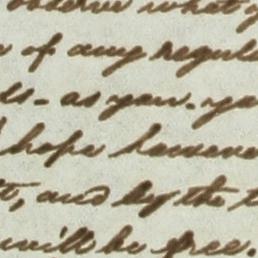 observe what y
of any regula
ds - as you - ya
hope however
t, and by the t
will be free.